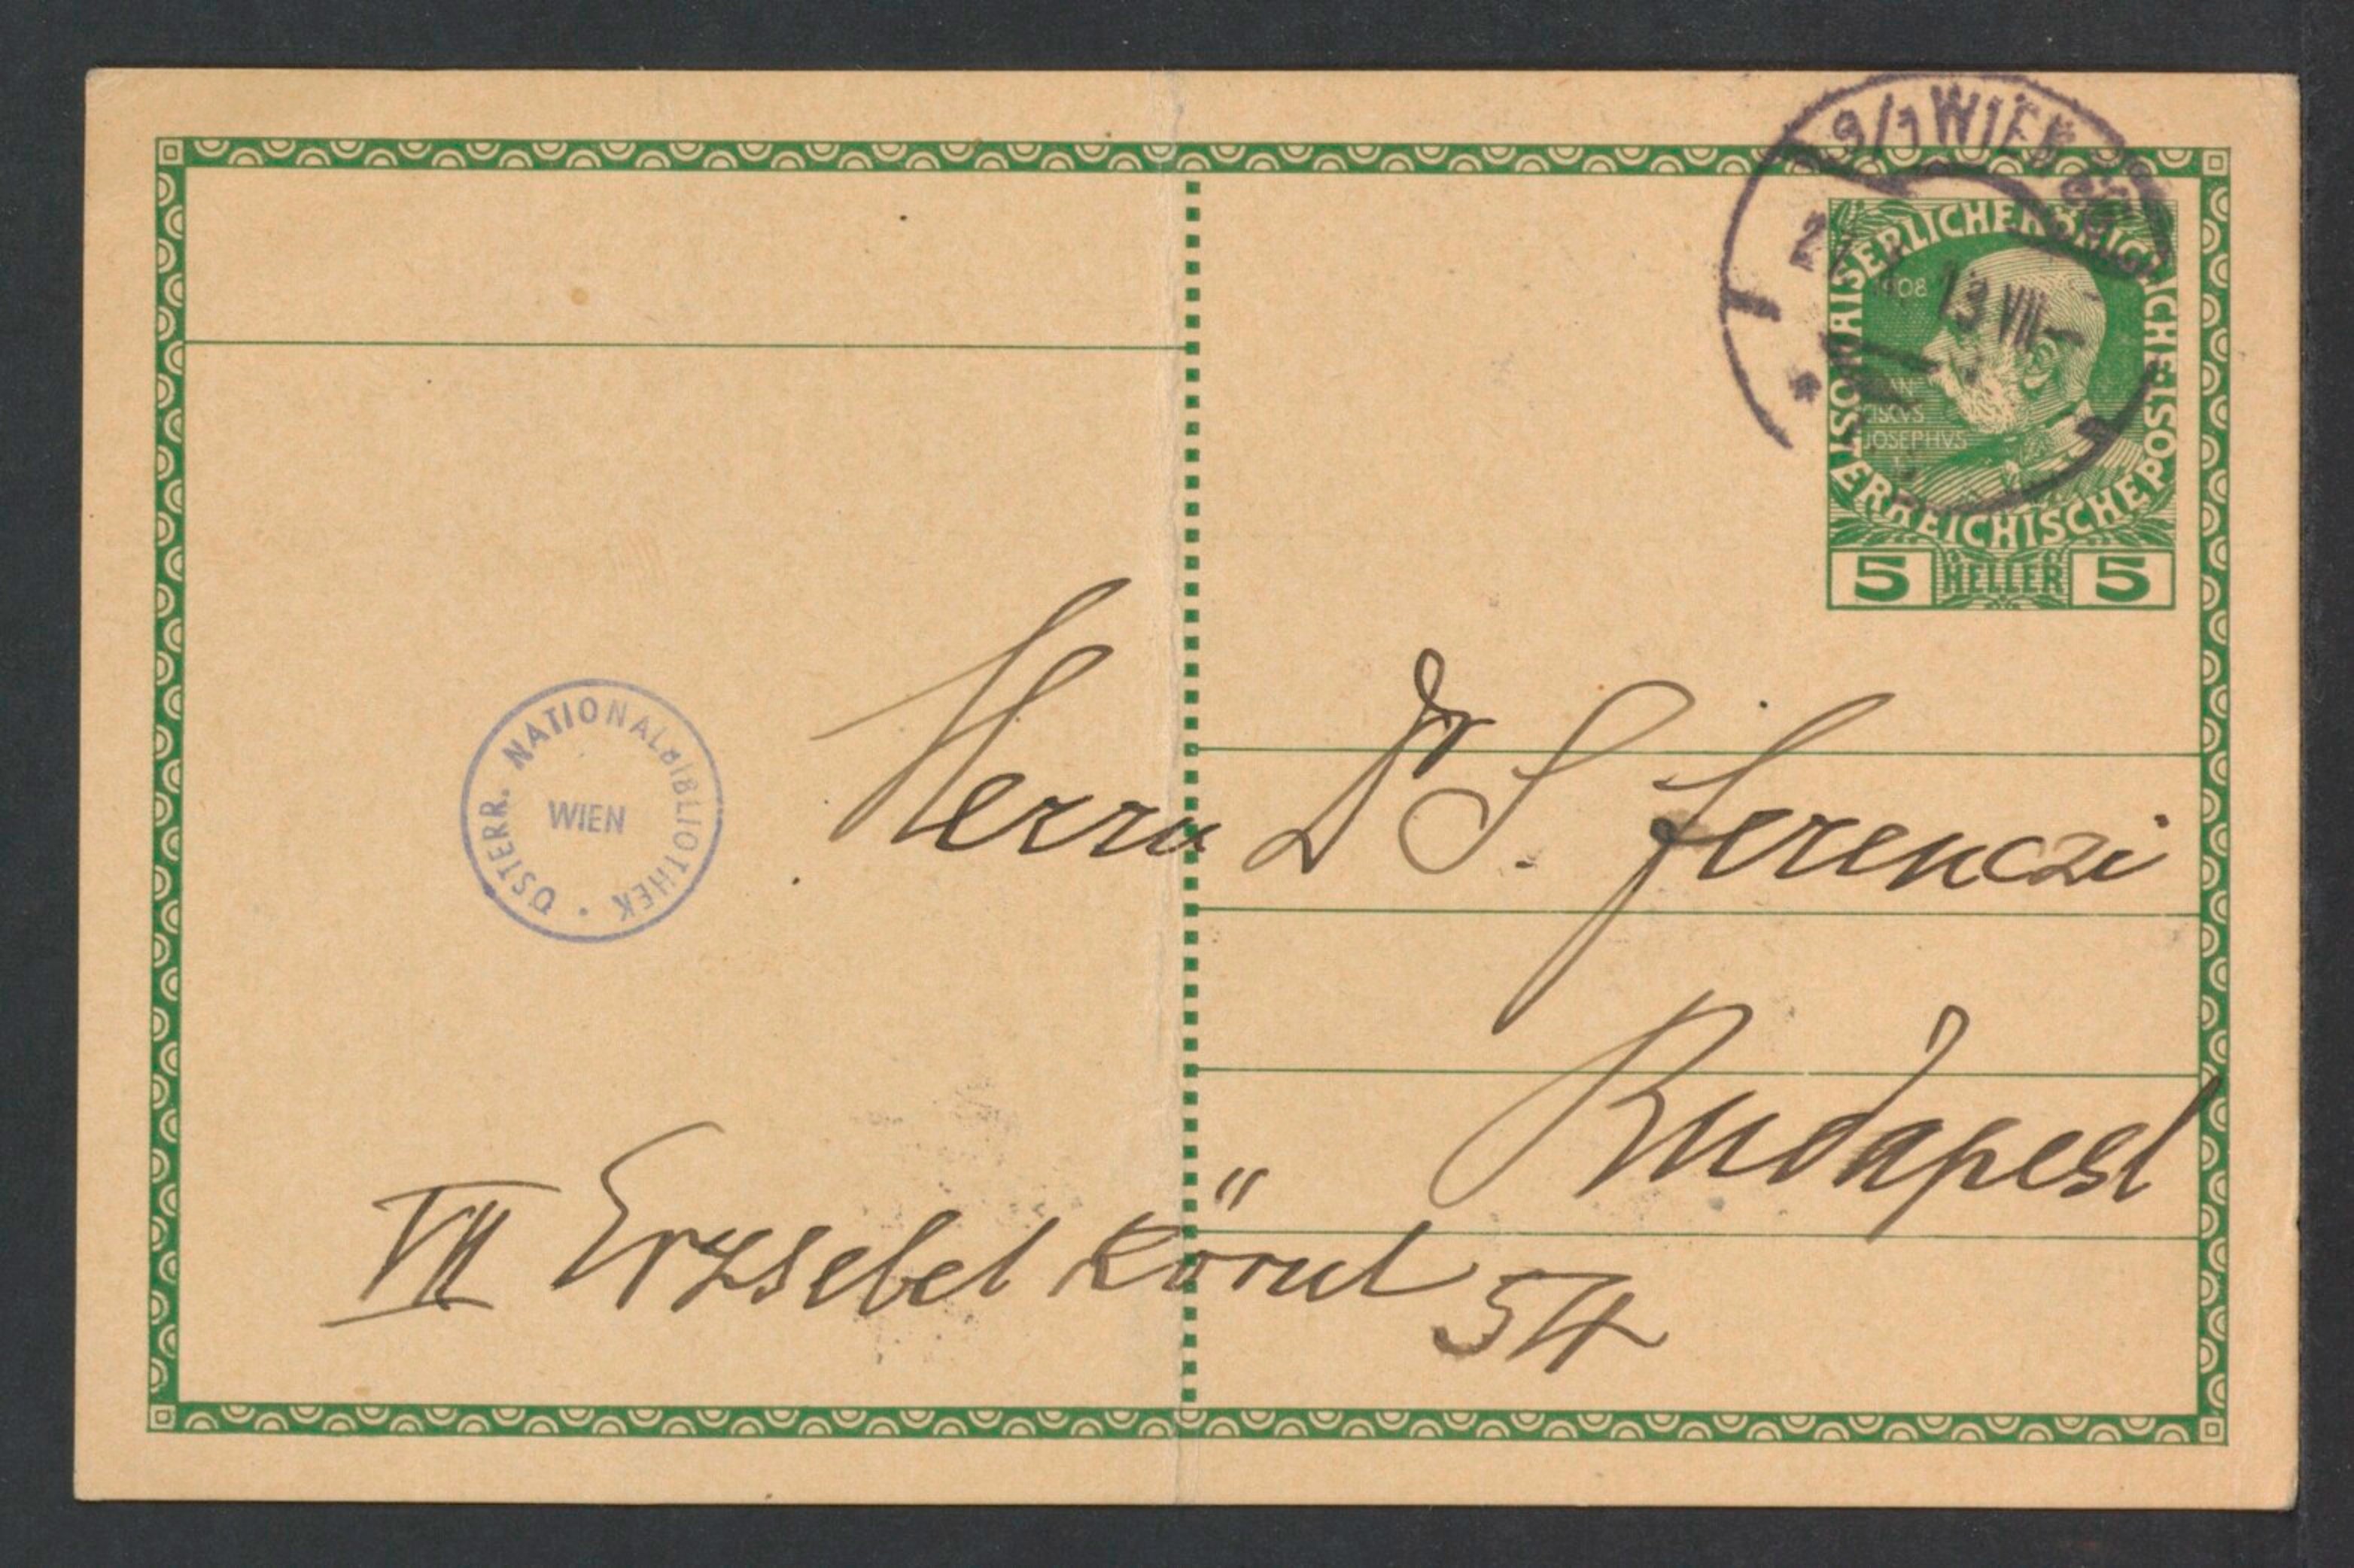 9/1 WIEN
13 VII
KAISERLICHE KÖNIGLICHE
ÖSTERREICHISCHE POST
1908
JOSEPHVS
5 HELLER 5
ÖSTERR. NATIONALBIBLIOTHEK •
WIEN
Herrn Dr S. Ferenczi
Budapest
VII Erzsebet körut 54